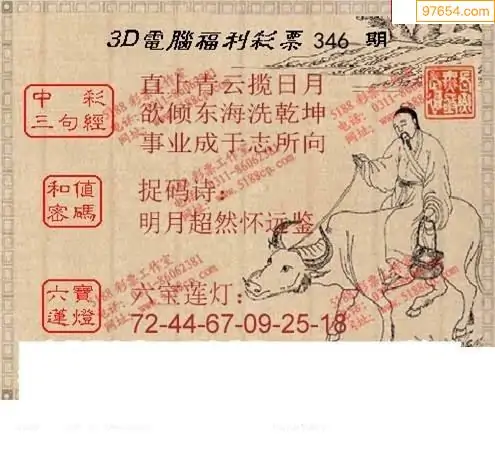 97654.com
3D電腦福利彩票 346 期
中彩
三句經
直上青云揽日月
欲倾东海洗乾坤
事业成于志所向
和值
密碼
捉码诗：
明月超然怀远鉴
六寶
蓮燈
六宝莲灯：
72-44-67-09-25-18
5188 彩票工作室
电话：0311-86062381
网址：www.5188cp.com